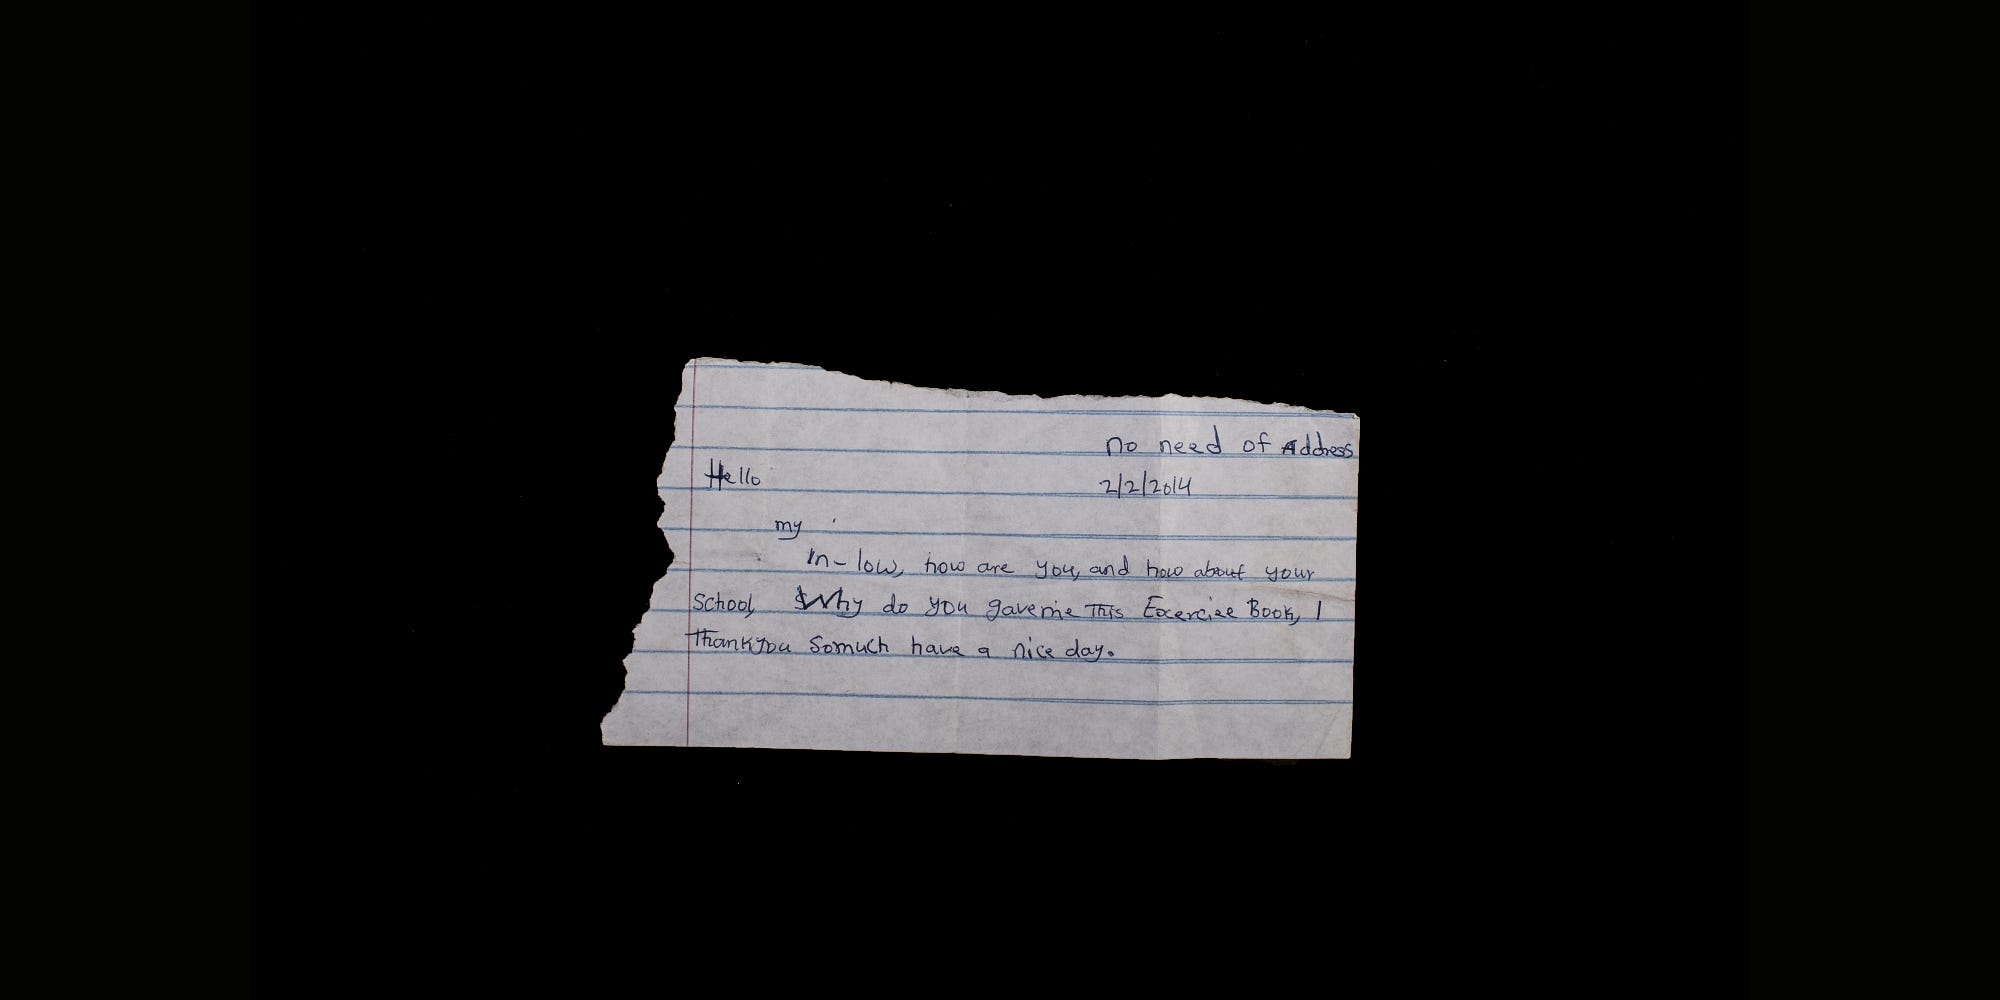 no need of Address
Hello 2/2/2014
my
In-low, how are you, and how about your
School, Why do you gaveme This Exercise Book, I
Thankyou Somuch have a nice day.